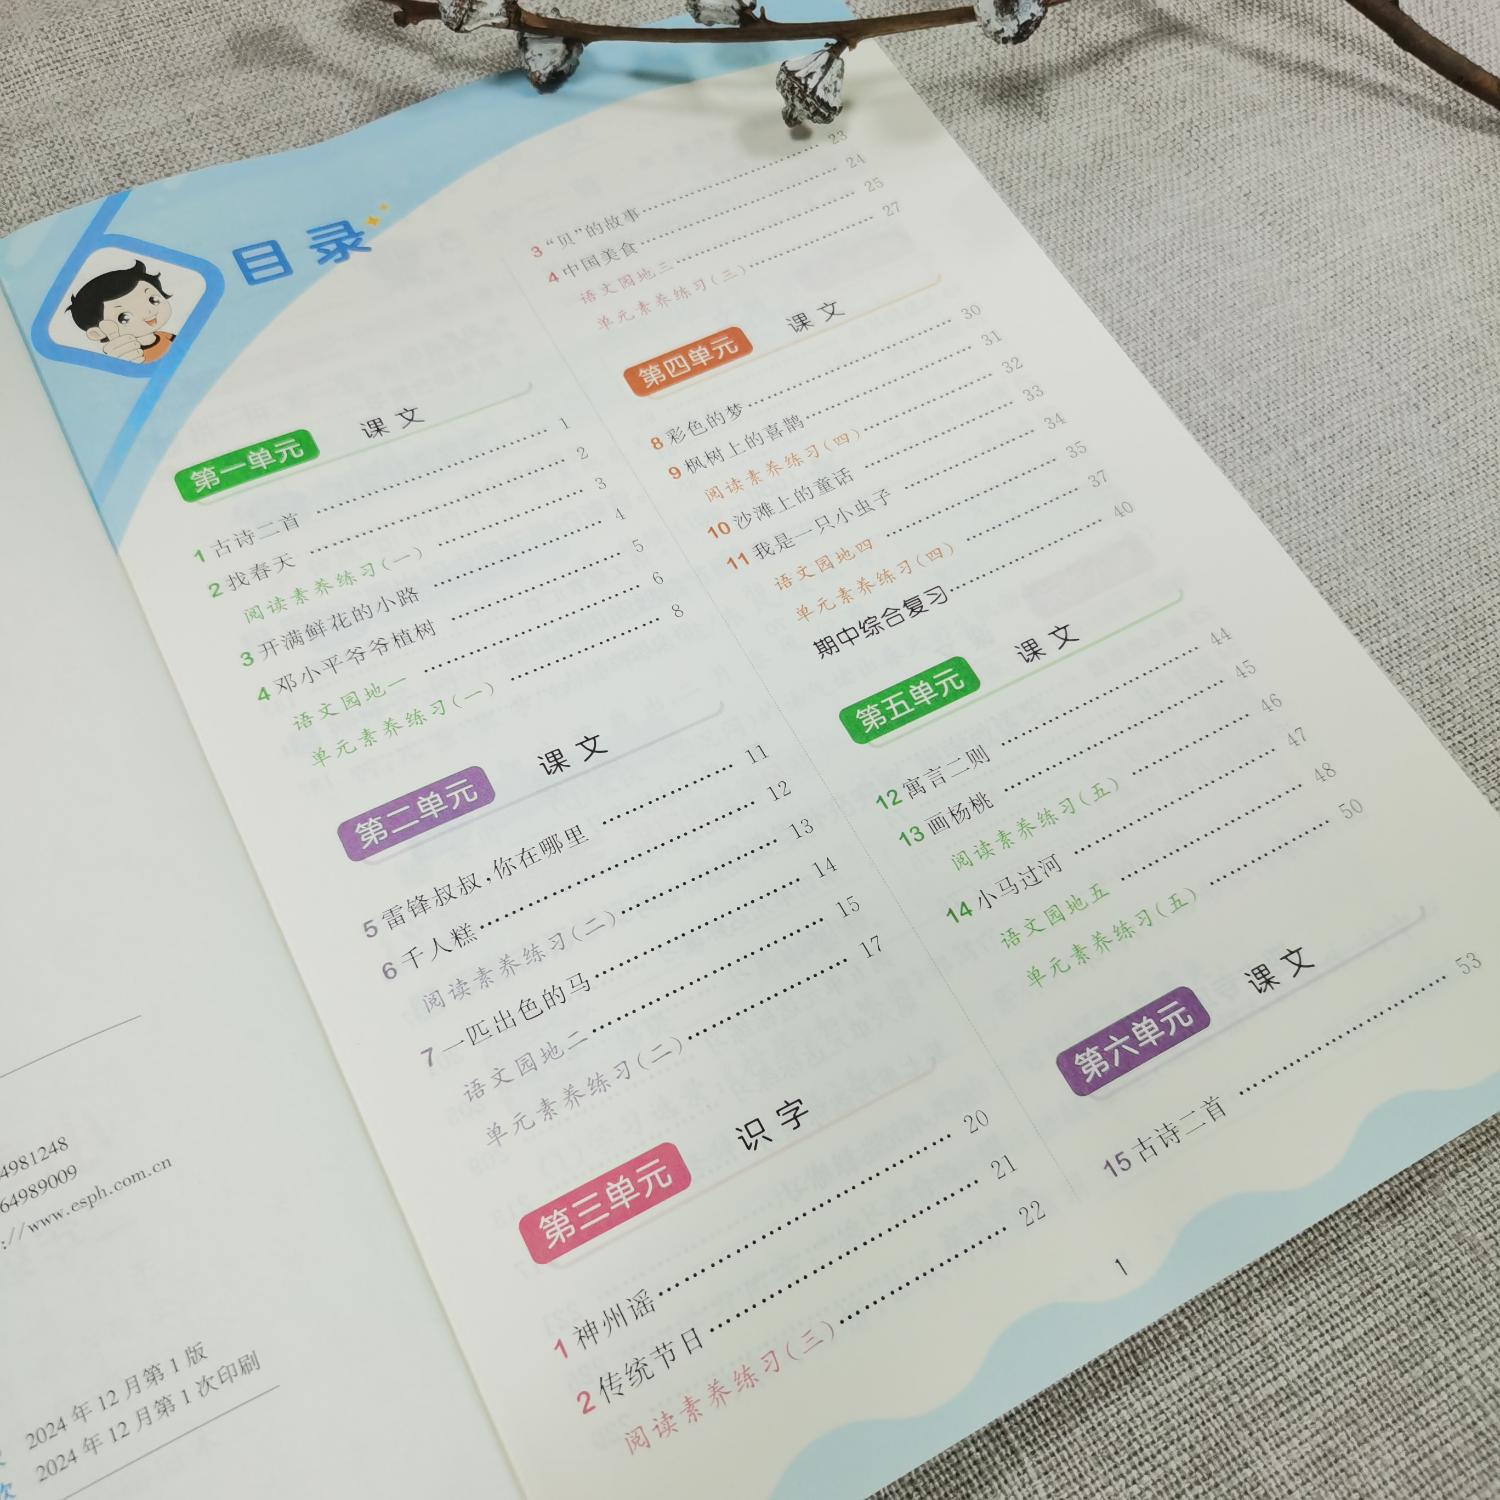 目录
第一单元 课文
1 古诗二首 1
2 找春天 2
阅读素养练习(一) 3
3 开满鲜花的小路 4
4 邓小平爷爷植树 5
语文园地一 6
单元素养练习(一) 8
第二单元 课文
5 雷锋叔叔,你在哪里 11
6 千人糕 12
阅读素养练习(二) 13
7 一匹出色的马 14
语文园地二 15
单元素养练习(二) 17
第三单元 识字
1 神州谣 20
2 传统节日 21
阅读素养练习(三) 22
3 “贝”的故事 23
4 中国美食 24
语文园地三 25
单元素养练习(三) 27
第四单元 课文
8 彩色的梦 30
9 枫树上的喜鹊 31
阅读素养练习(四) 32
10 沙滩上的童话 33
11 我是一只小虫子 34
语文园地四 35
单元素养练习(四) 37
期中综合复习 40
第五单元 课文
12 寓言二则 44
13 画杨桃 45
阅读素养练习(五) 46
14 小马过河 47
语文园地五 48
单元素养练习(五) 50
第六单元 课文
15 古诗二首 53
1
4981248
64989009
://www.esph.com.cn
2024 年 12 月第 1 版
次 2024 年 12 月第 1 次印刷